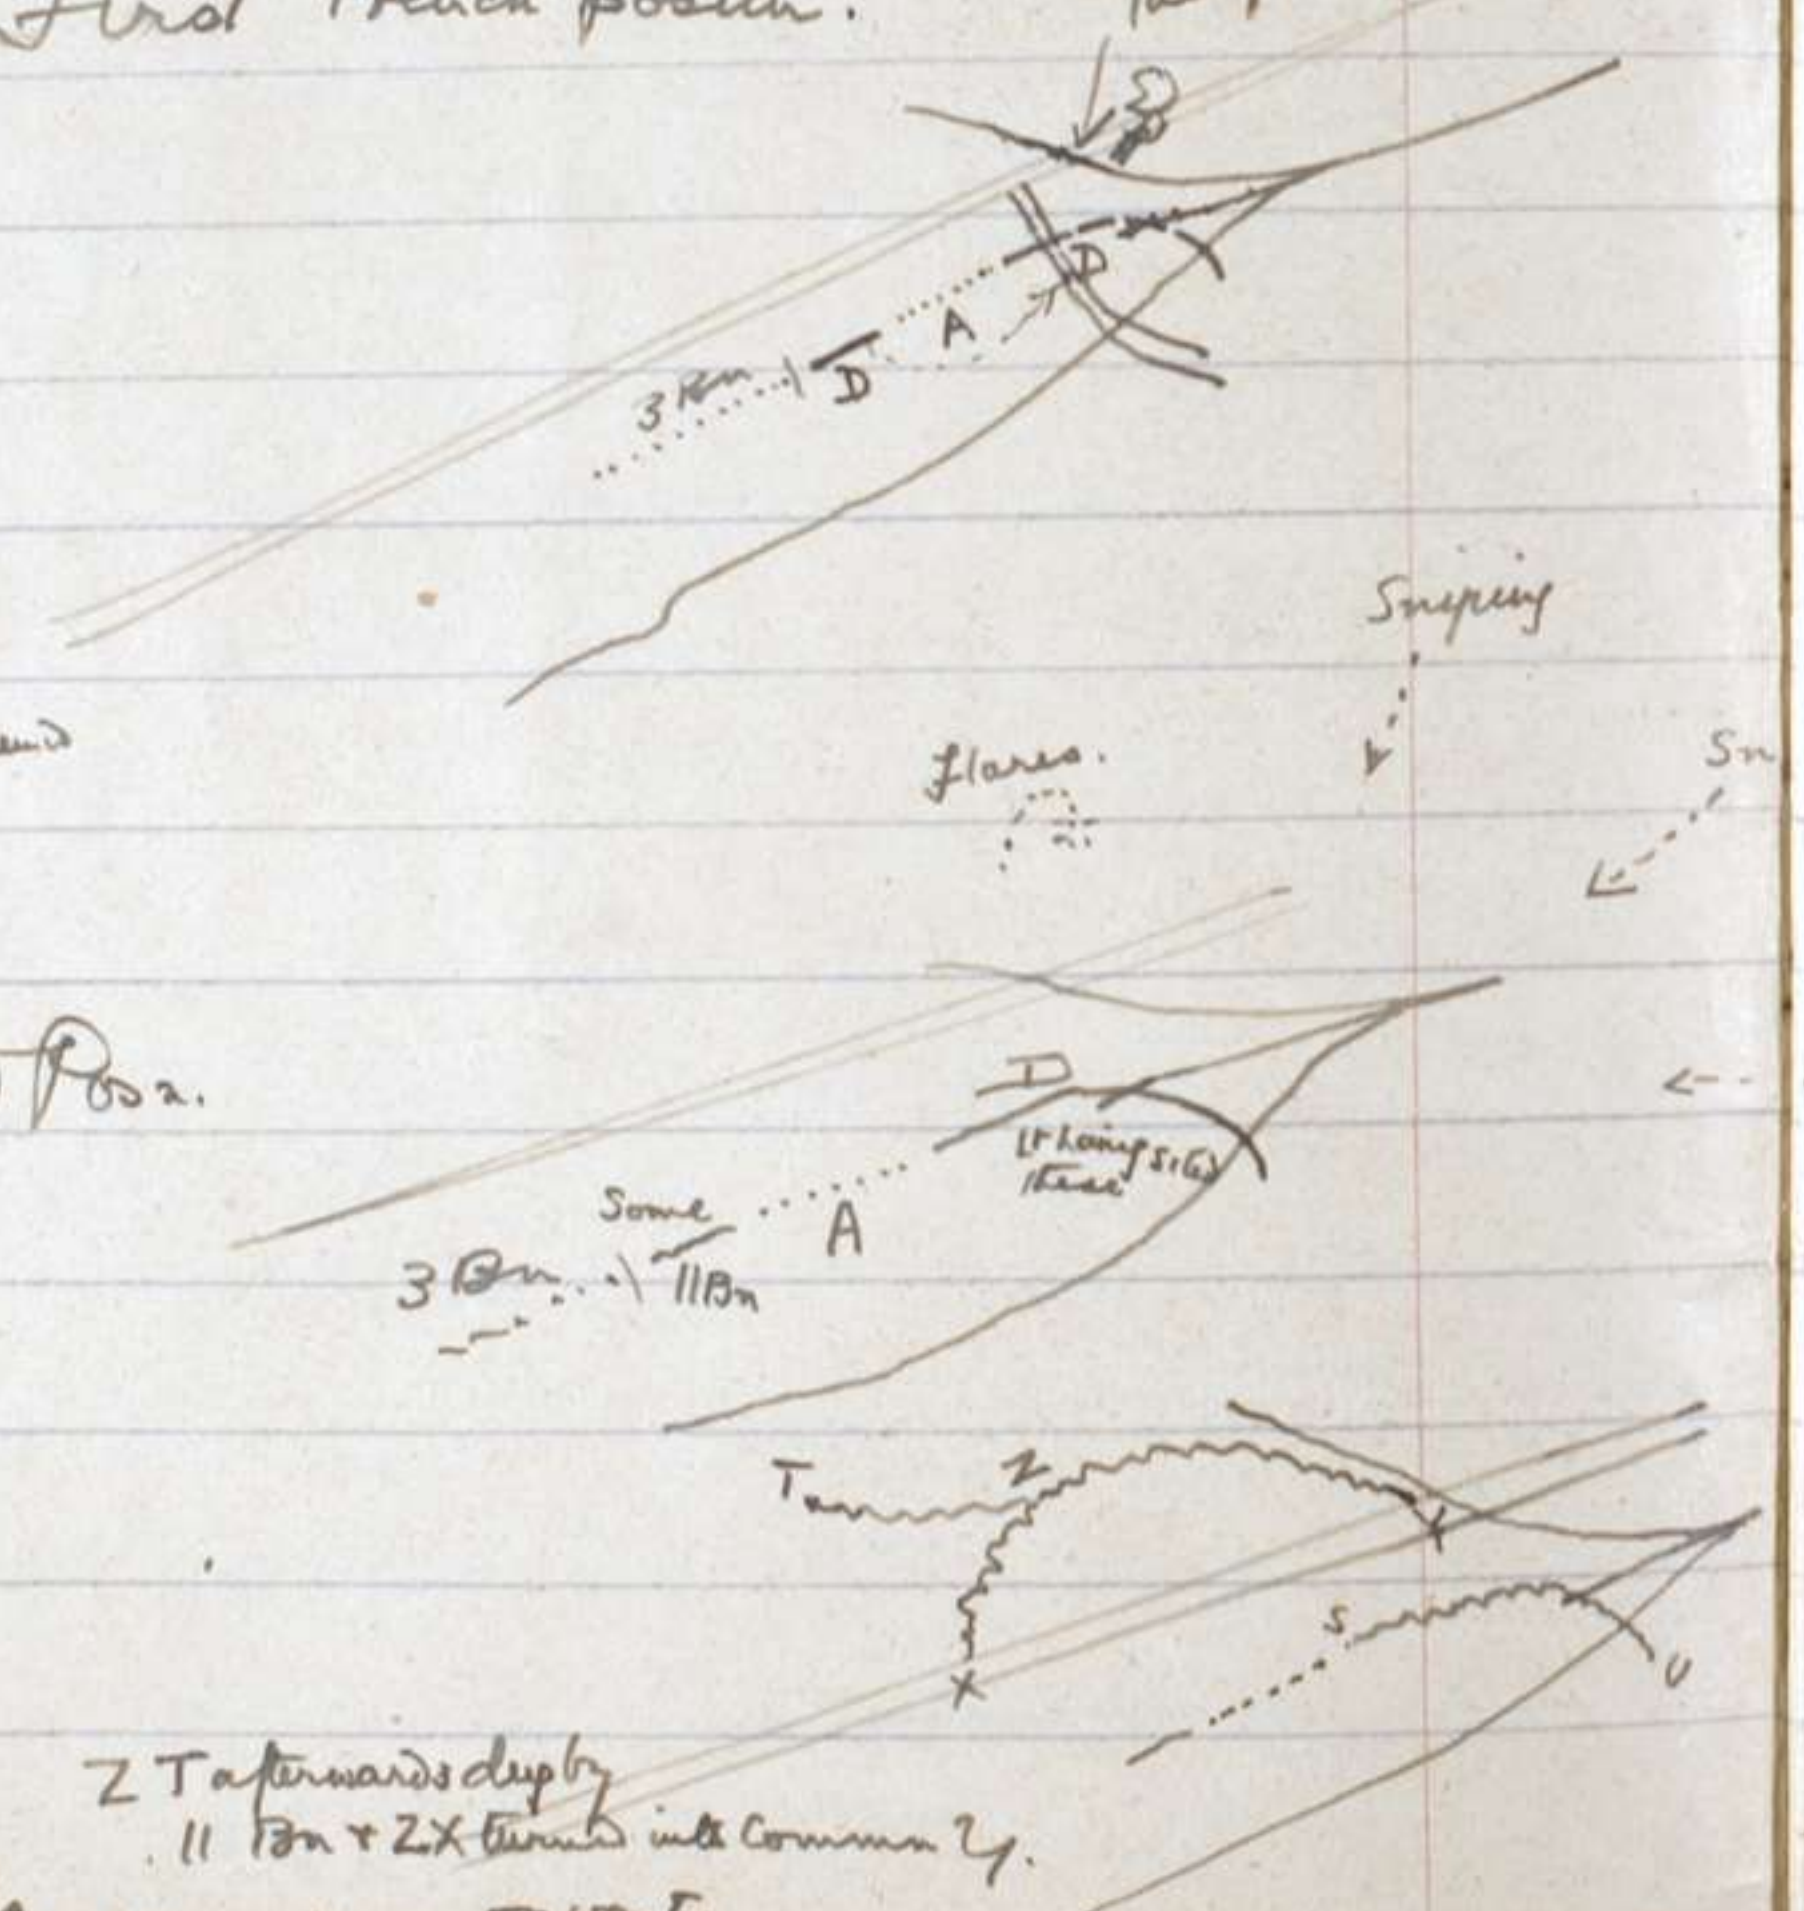 First Trench position.
D
A
3 Bn
D
Sniping
flares.
Sn
Posn.
D
Lt Laing sited
these
Some
A
3 Bn
11 Bn
T
Z
Y
S
U
X
Z T afterwards dug by
11 Bn & ZX turned into Commun